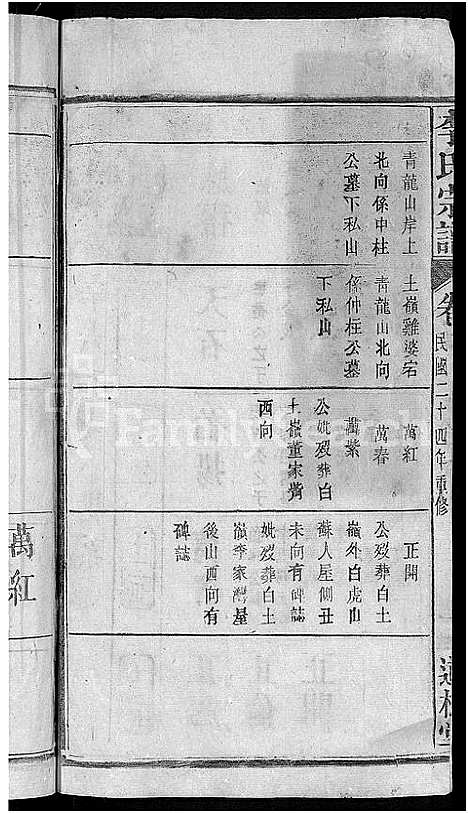 李氏宗譜
卷
民國二十四年重修
青龍山岸上
北向係中柱
公墓下私山
土嶺雞婆宕
青龍山北向
係仲柱公墓
下私山
萬紅
萬春
萬紫
公妣歿葬白
土嶺董家
西向
正開
公歿葬白土
嶺外白虎山
蘇人屋側丑
未向有碑誌
妣歿葬白土
嶺李家灣屋
後山酉向有
碑誌
萬紅